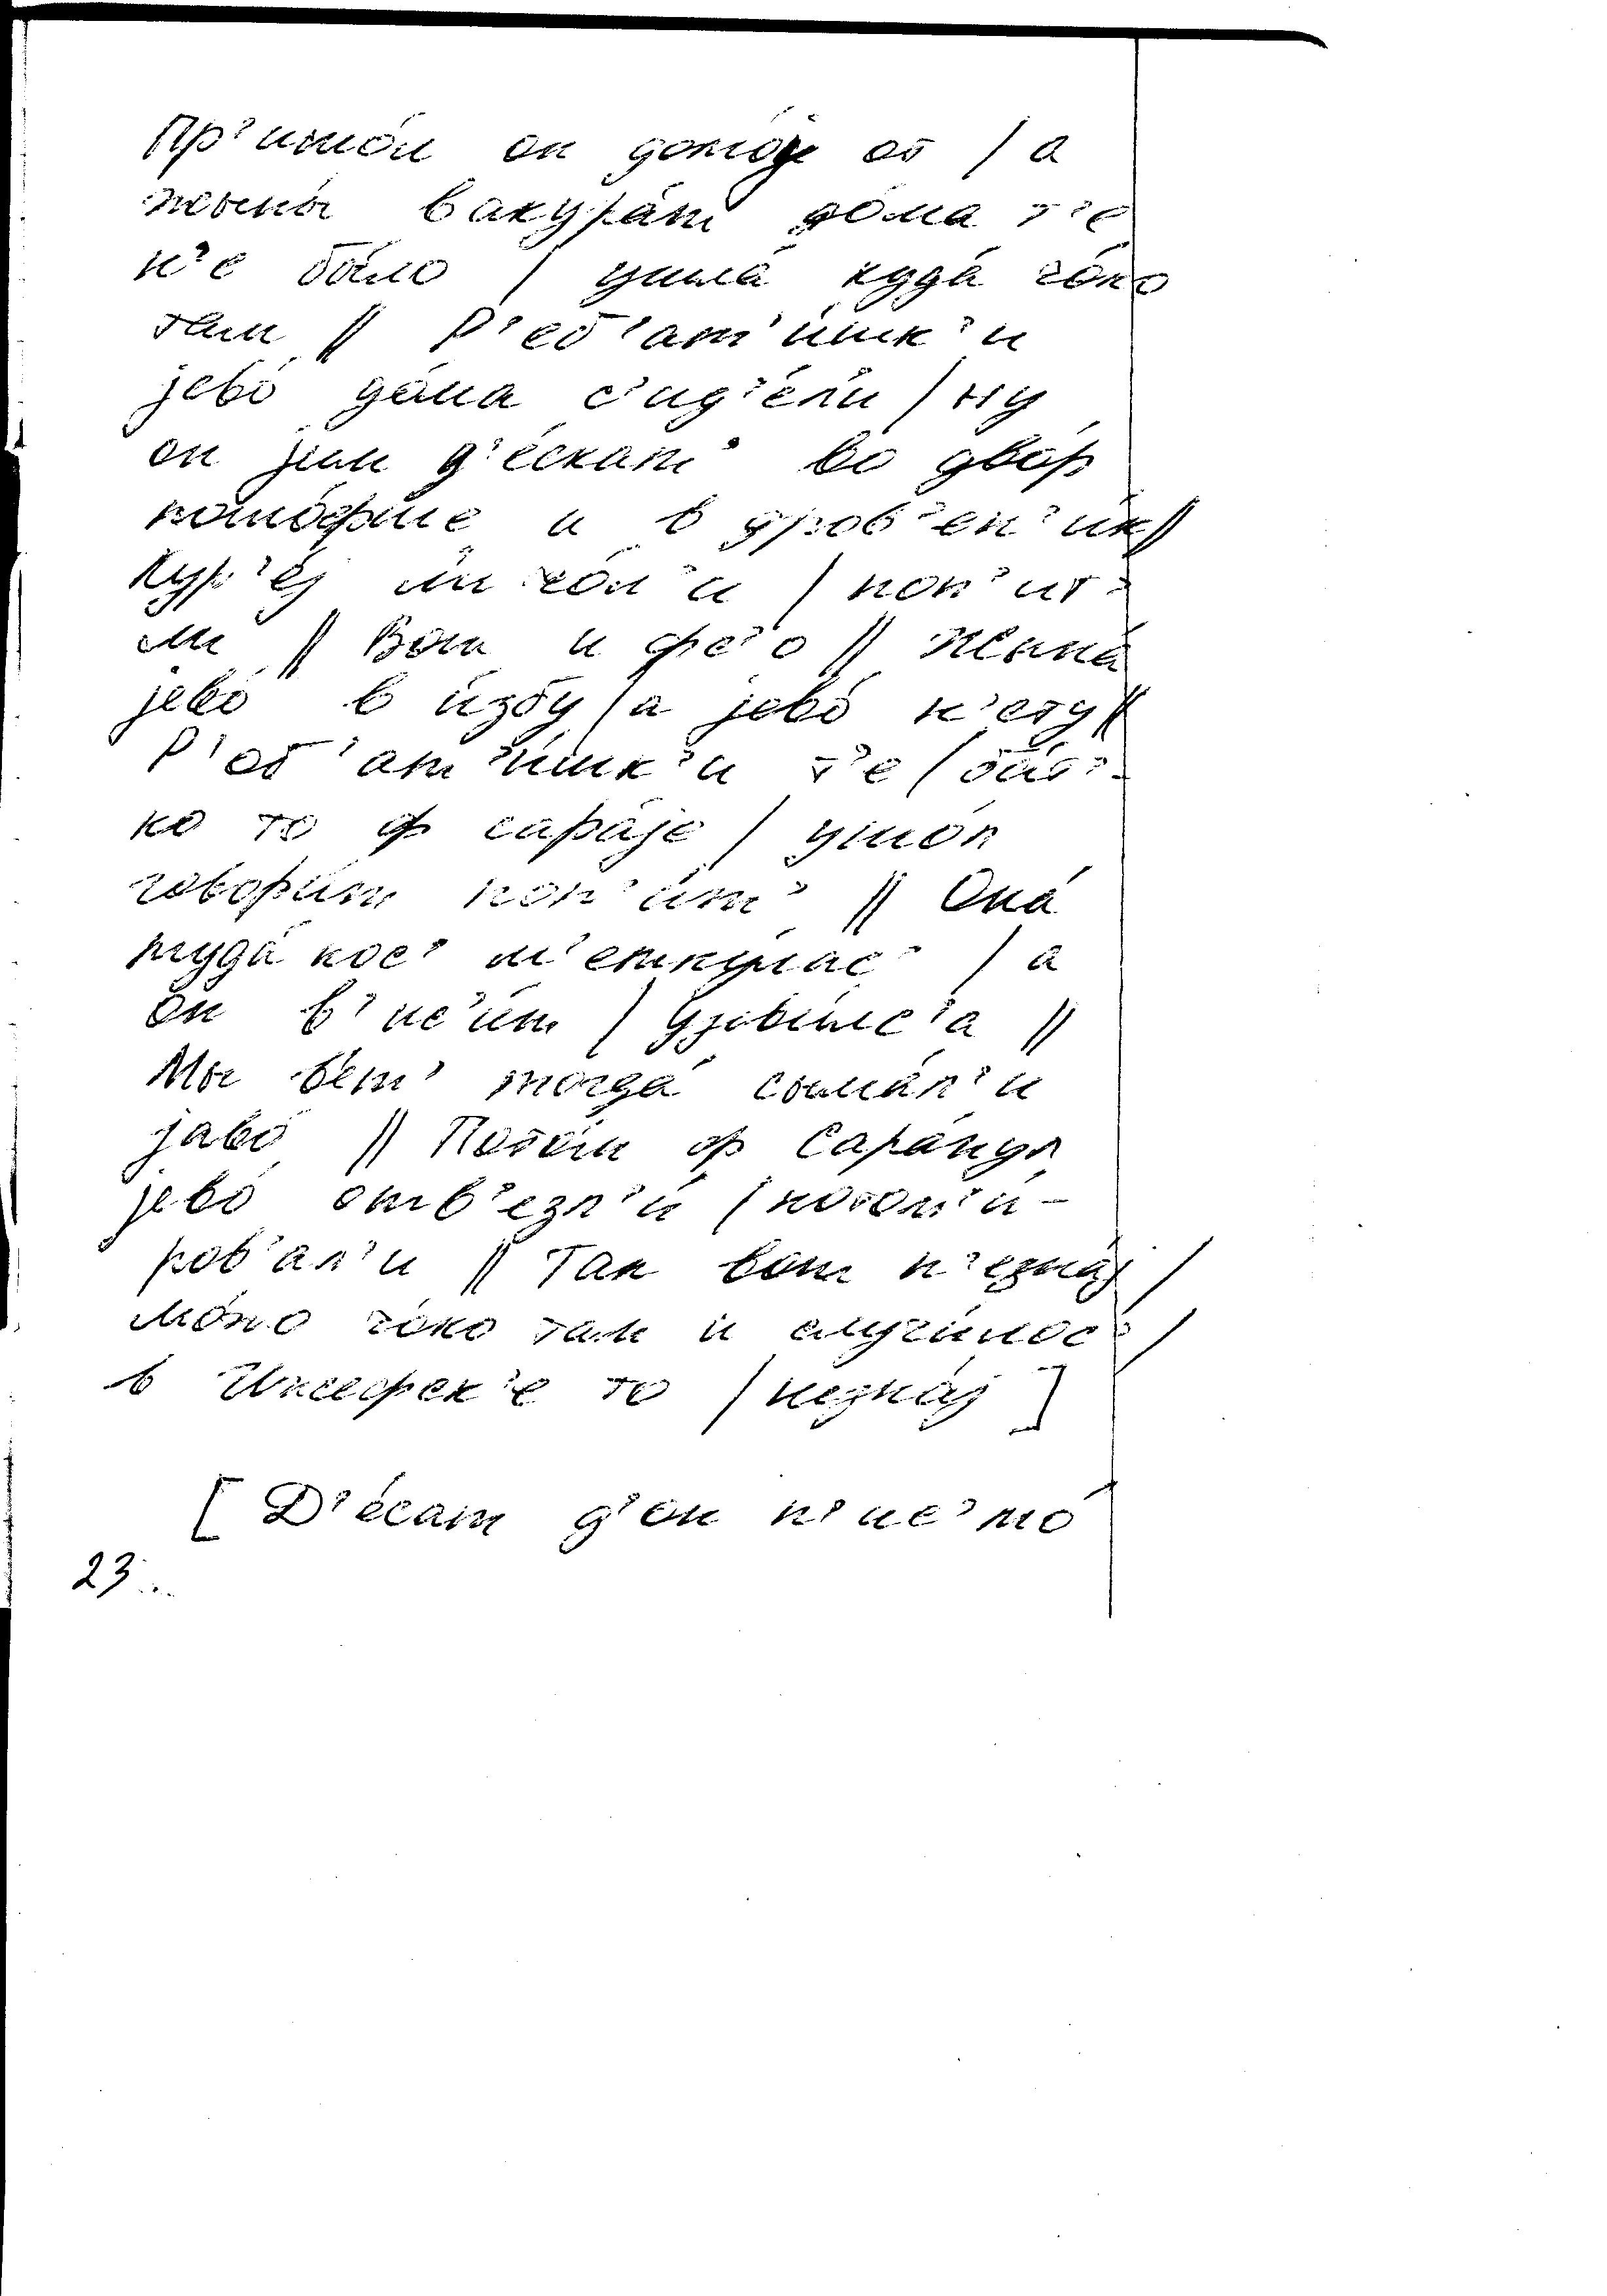 Пр'ишо́л он домо́j от / а
жоны́ вакура́т до́ма т'е
н'е бы́ло / ушла́ куда́
там // Р'еб'ат'и́шк'и
jево́ до́ма с'ид'е́ли / ну
он jим д'е́скат' во двор
пошо́фше и в дров'ен'и́к //
Кур'е́j / пок'ит'
// Вот и фс'о // Жына́
jево́ в и́збу / а jево́ н'ету //
Р'еб'ат'и́шк'и т'е / ба́т'-
ко то ф сара́jе / ушо́л
говори́т кон'и́т' // Она́
туда́ кос' м'еткну́лас' / а
он в'ис'и́т / уjави́лс'а //
Мы ве́т' тогда́ сыма́л'и
jаво́ // Пото́м ф Сара́пул
jево́ отв'езл'и́ / потом'и́-
ров'ал'и // Так вот н'езна́j /
мо́но чо́ко там и случи́лос' /
в то / незна́j ]
[ Д'е́сат д'он п'ис'мо́
23